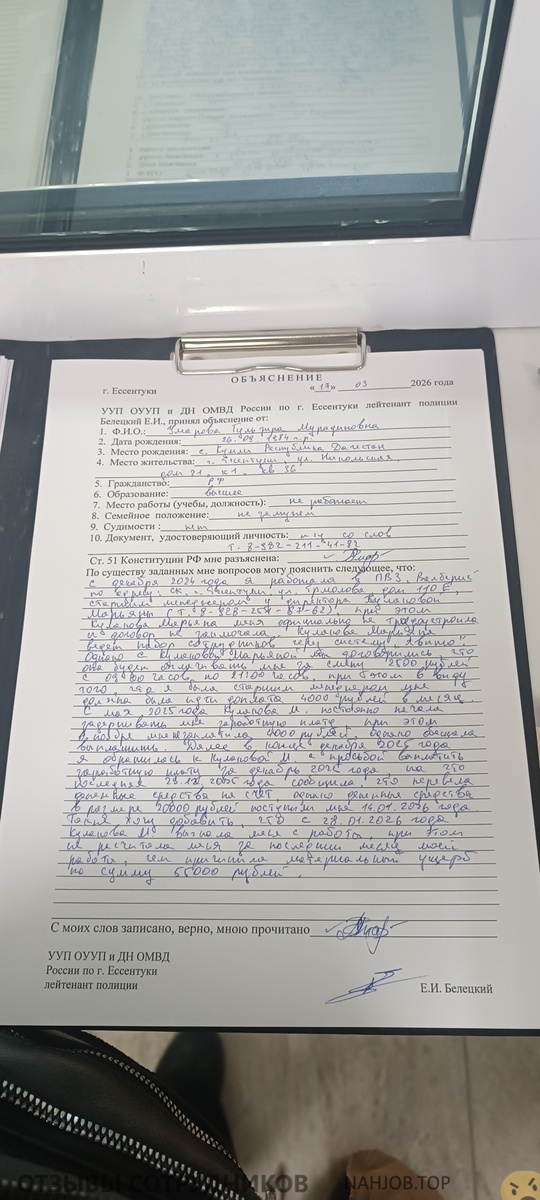 ОБЪЯСНЕНИЕ
г. Ессентуки «17» 03 2026 года
УУП ОУУП и ДН ОМВД России по г. Ессентуки лейтенант полиции
Белецкий Е.И., принял объяснение от:
1. Ф.И.О.: Умарова Гульзира Мурадиновна
2. Дата рождения: 26.09.1984 г.р.
3. Место рождения: с. Республика Дагестан
4. Место жительства: г. Ессентуки, ул. Никольская,
дом 21, к1, кв 36
5. Гражданство: РФ
6. Образование: высшее
7. Место работы (учебы, должность): не работает
8. Семейное положение: не замужем
9. Судимости: нет
10. Документ, удостоверяющий личность: со слов
т. 8-982-211-41-82
Ст. 51 Конституции РФ мне разъяснена:
По существу заданных мне вопросов могу пояснить следующее, что:
с декабря 2024 года я работала в ПВЗ "Валберис"
по адресу: СК, г. Ессентуки, ул. Ермолова дом 110 Е,
старшим менеджером у директора Кулаковой
Марьяны (т. 8-928-254-87-62), при этом
Кулакова Марьяна меня официально не трудоустроила
и договор не заключала. Кулакова Марьяна
ведет набор сотрудников через систему "Авито"
Однако с Кулаковой Марьяной мы договорились, что
она будет оплачивать мне за смену 2500 рублей
с 09:00 часов, по 21:00 часов, при этом в виду
того, что я была старшим менеджером мне
должна была идти доплата 4000 рублей в месяц.
С мая 2025 года Кулакова М. постоянно начала
задерживать мне заработную плату, при этом
в ноябре мне заплатила 4000 рублей, обещала
выплатить. Далее в конце декабря 2025 года
я обратилась к Кулаковой М. с просьбой выплатить
заработную плату за декабрь 2025 года на что
последняя 29.12.2025 года сообщила, что перевела
денежные средства на счет однако денежные средства
в размере 20000 рублей поступили мне 14.01.2026 года.
Также хочу добавить, что с 28.01.2026 года
Кулакова М. выгнала меня с работы, при этом
не рассчитала меня за последний месяц моей
работы, чем причинила материальный ущерб
на сумму 55000 рублей.
С моих слов записано, верно, мною прочитано
УУП ОУУП и ДН ОМВД
России по г. Ессентуки
лейтенант полиции Е.И. Белецкий
ОТЗЫВЫ СОТРУДНИКОВ NAHJOB.TOP